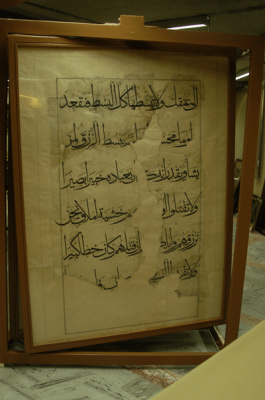 الى عنقك ولا تبسطها كل البسط فتقعد
ملوما محسو يبسط الرزق لمن
يشا ويقدر انه كا ن بعباده خبيرا بصيرا
ولا تقتلوا او خشية املاق نحن
نرزقهم وايا ان قتلهم كان خطا كبيرا
ولا تقربوا ا